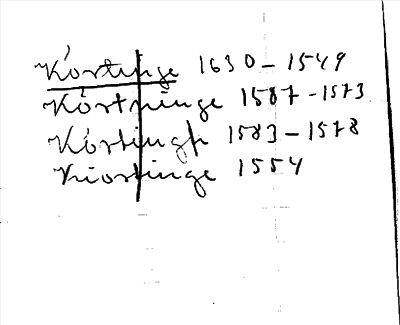 Kórtinge 1630-1549
Kórtninge 1587-1573
Kórtingh 1583-1578
Kiortinge 1554